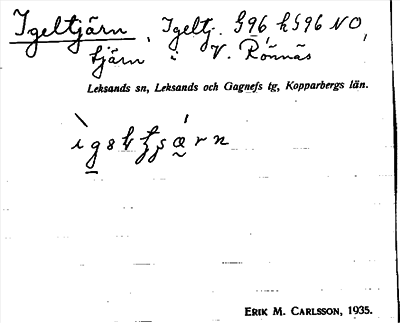 Igeltjärn, Igeltj. G96 h S96 NO,
tjärn i V. Rönnäs
Leksands sn, Leksands och Gagnefs tg, Kopparbergs län.
ERIK M. CARLSSON, 1935.